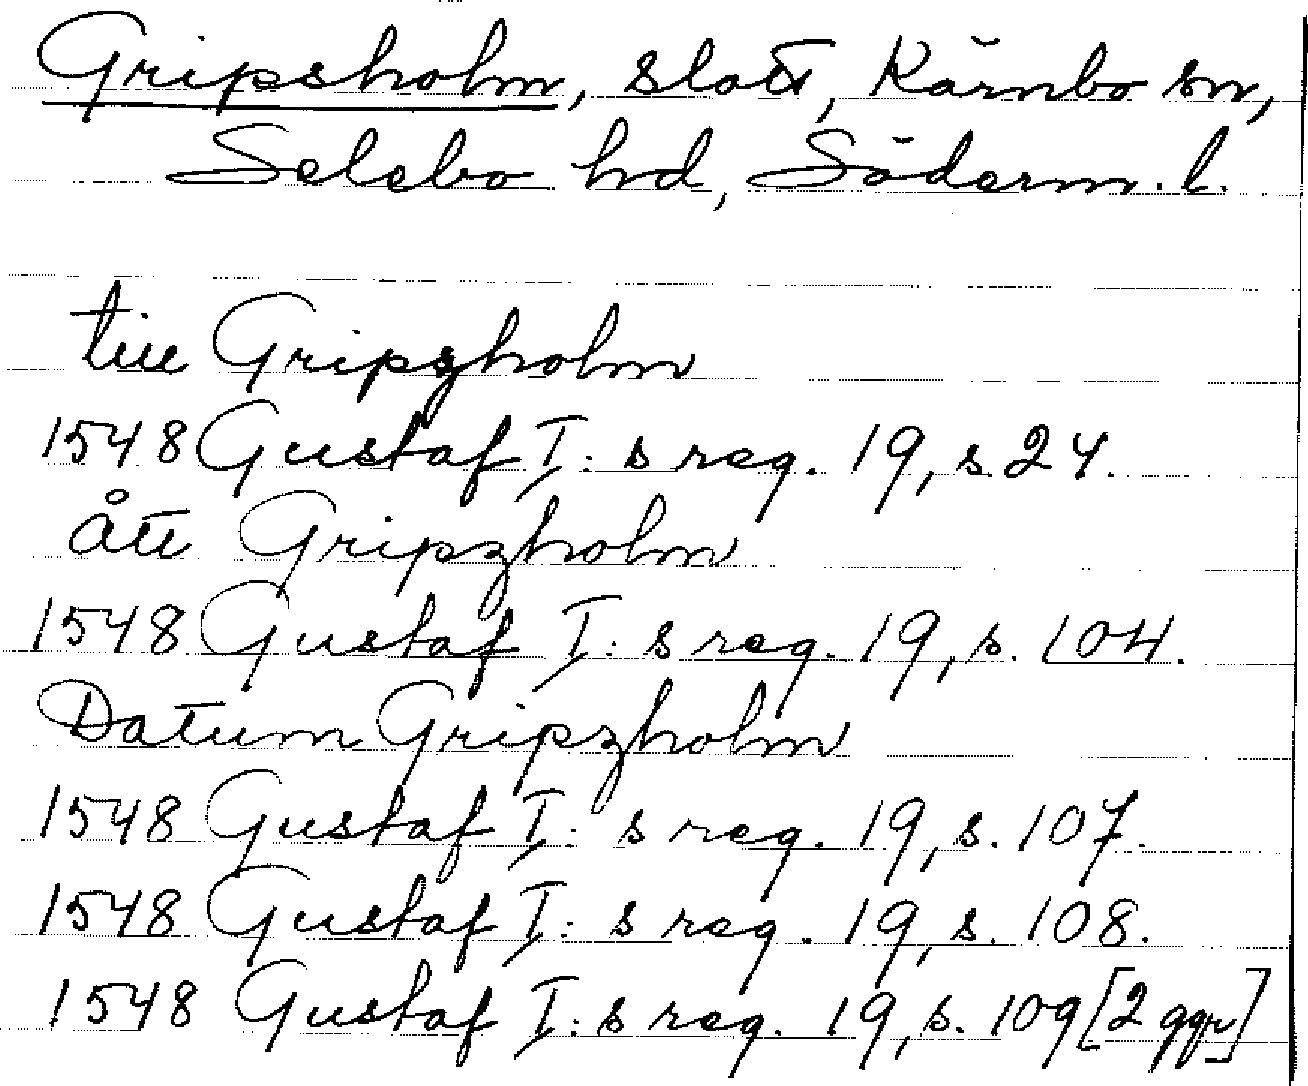 Gripsholm, slott, Kärnbo sn,
Selebo hd, Söderm. l.
till Gripszholm
1548 Gustaf I:s reg. 19, s. 24.
ått Gripzholm
1548 Gustaf I:s reg. 19, s. 104.
Datum Gripzholm
1548 Gustaf I:s reg. 19, s. 107.
1548 Gustaf I:s reg. 19, s. 108.
1548 Gustaf I:s reg. 19, s. 109 [2 ggr]